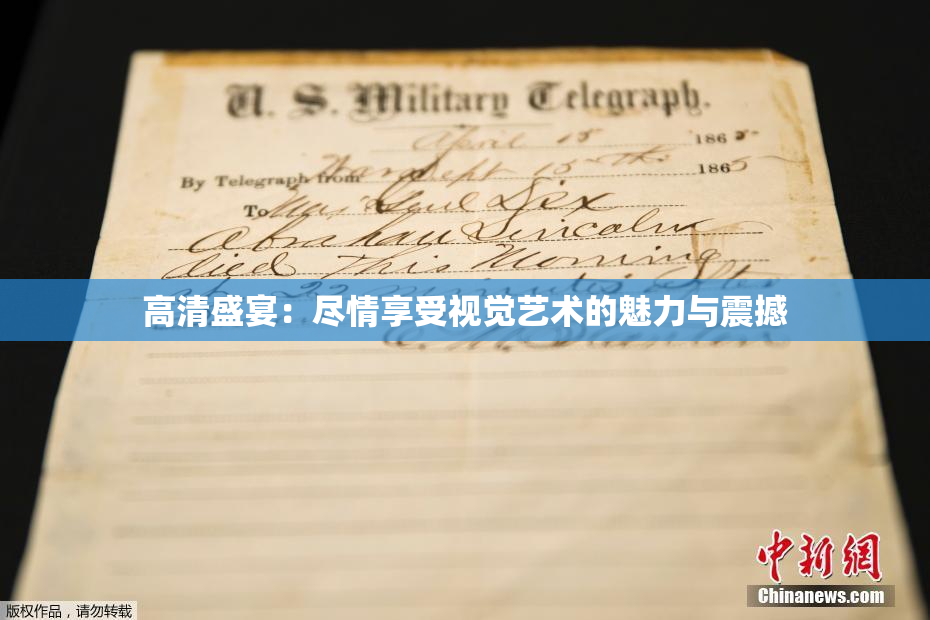 U. S. Military Telegraph.
April 15 1865
By Telegraph from War Dept 15th 1865
To Maj Genl Dix
Abraham Lincoln
died This Morning
at 22 minutes after
高清盛宴：尽情享受视觉艺术的魅力与震撼
E. M. Stanton
中新网
Chinanews.com
版权作品，请勿转载